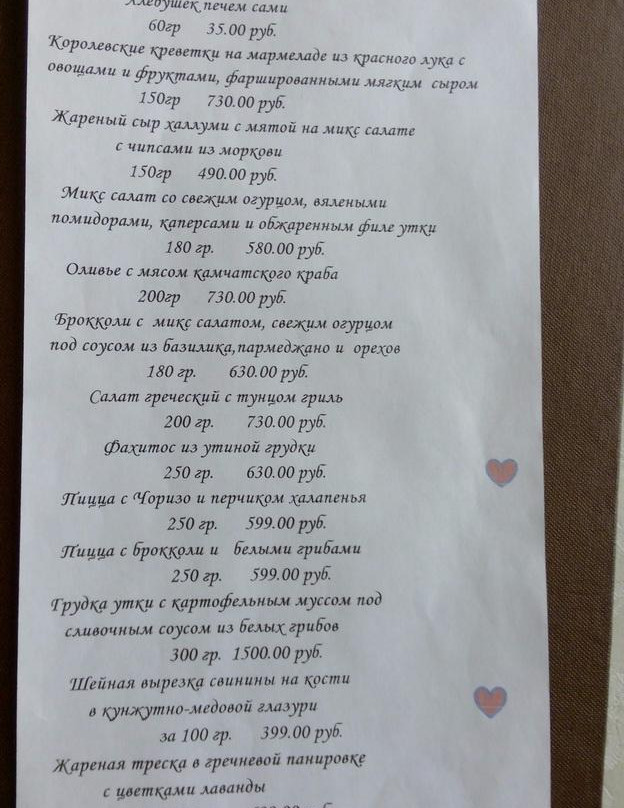 Хлебушек печем сами
60гр 35.00 руб.
Королевские креветки на мармеладе из красного лука с
овощами и фруктами, фаршированными мягким сыром
150гр 730.00 руб.
Жареный сыр халлуми с мятой на микс салате
с чипсами из моркови
150г 490.00 руб.
Микс салат со свежим огурцом, вялеными
помидорами, каперсами и обжаренным филе утки
180 гр. 580.00 руб.
Оливье с мясом камчатского краба
200гр 730.00 руб.
Брокколи с микс салатом, свежим огурцом
под соусом из базилика,пармеджано и орехов
180 гр. 630.00 руб.
Салат греческий с тунцом гриль
200 гр. 730.00 руб.
Фахитос из утиной грудки
250 гр. 630.00 руб.
Пицца с Чоризо и перчиком халапенья
250 гр. 599.00 руб.
Пицца с брокколи и белыми грибами
250 гр. 599.00 руб.
Грудка утки с картофельным муссом под
сливочным соусом из белых грибов
300 гр. 1500.00 руб.
Шейная вырезка свинины на кости
в кунжутно-медовой глазури
за 100 гр. 399.00 руб.
Жареная треска в гречневой панировке
с цветками лаванды